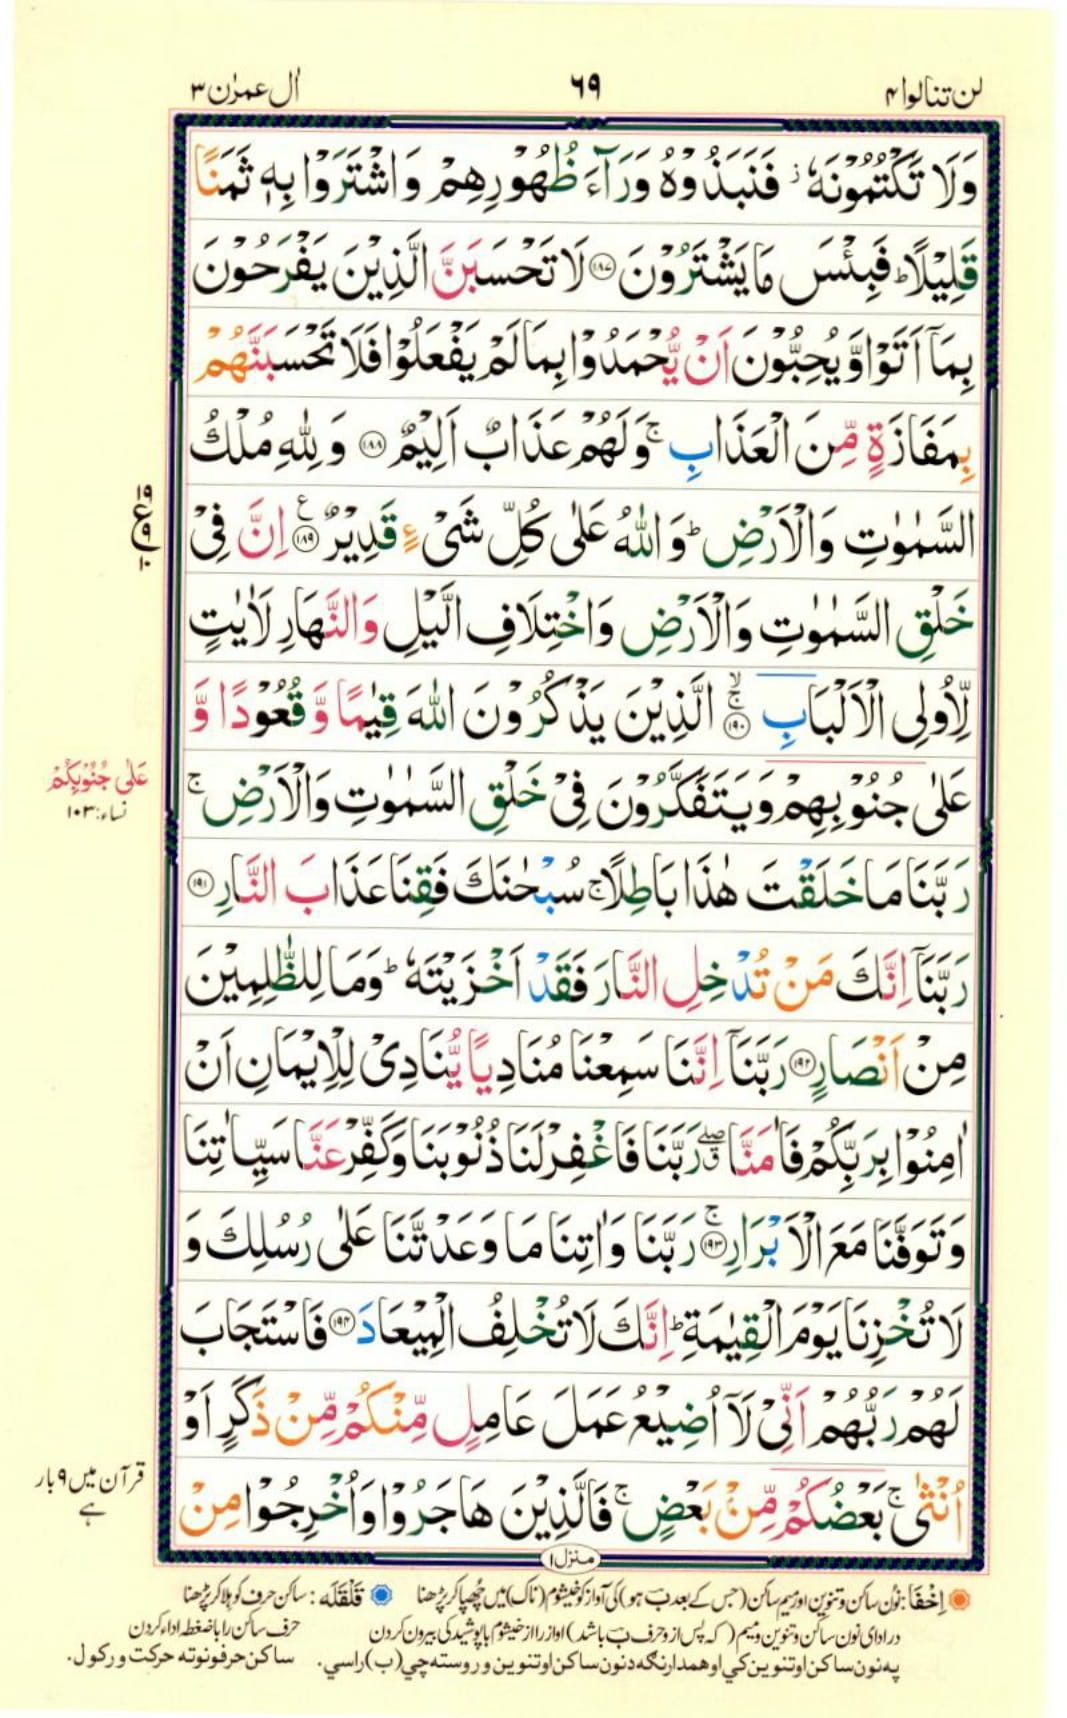 لن تنالوا ۴
۶۹
اٰل عمرٰن ۳
وَلَا تَكْتُمُوْنَهٗ ؗ فَنَبَذُوْهُ وَرَآءَ ظُهُوْرِهِمْ وَاشْتَرَوْا بِهٖ ثَمَنًا
قَلِيْلًا ؕ فَبِئْسَ مَا يَشْتَرُوْنَ ﴿۱۸۷﴾ لَا تَحْسَبَنَّ الَّذِيْنَ يَفْرَحُوْنَ
بِمَآ اَتَوْا وَّيُحِبُّوْنَ اَنْ يُّحْمَدُوْا بِمَا لَمْ يَفْعَلُوْا فَلَا تَحْسَبَنَّهُمْ
بِمَفَازَةٍ مِّنَ الْعَذَابِ ۚ وَلَهُمْ عَذَابٌ اَلِيْمٌ ﴿۱۸۸﴾ وَلِلّٰهِ مُلْكُ
السَّمٰوٰتِ وَالْاَرْضِ ؕ وَاللّٰهُ عَلٰى كُلِّ شَىْءٍ قَدِيْرٌ ﴿۱۸۹﴾ ع اِنَّ فِىْ
خَلْقِ السَّمٰوٰتِ وَالْاَرْضِ وَاخْتِلَافِ الَّيْلِ وَالنَّهَارِ لَاٰيٰتٍ
لِّاُولِى الْاَلْبَابِ ﴿۱۹۰﴾ ۚۙ الَّذِيْنَ يَذْكُرُوْنَ اللّٰهَ قِيٰمًا وَّقُعُوْدًا وَّ
عَلٰى جُنُوْبِهِمْ وَيَتَفَكَّرُوْنَ فِىْ خَلْقِ السَّمٰوٰتِ وَالْاَرْضِ ۚ
عَلٰى جُنُوْبِكُمْ
نساء: ۱۰۳
رَبَّنَا مَا خَلَقْتَ هٰذَا بَاطِلًا ۚ سُبْحٰنَكَ فَقِنَا عَذَابَ النَّارِ ﴿۱۹۱﴾
رَبَّنَآ اِنَّكَ مَنْ تُدْخِلِ النَّارَ فَقَدْ اَخْزَيْتَهٗ ؕ وَمَا لِلظّٰلِمِيْنَ
مِنْ اَنْصَارٍ ﴿۱۹۲﴾ رَبَّنَآ اِنَّنَا سَمِعْنَا مُنَادِيًا يُّنَادِىْ لِلْاِيْمَانِ اَنْ
اٰمِنُوْا بِرَبِّكُمْ فَاٰمَنَّا ۖۗ رَبَّنَا فَاغْفِرْ لَنَا ذُنُوْبَنَا وَكَفِّرْ عَنَّا سَيِّاٰتِنَا
وَتَوَفَّنَا مَعَ الْاَبْرَارِ ﴿۱۹۳﴾ ۚ رَبَّنَا وَاٰتِنَا مَا وَعَدْتَّنَا عَلٰى رُسُلِكَ وَ
لَا تُخْزِنَا يَوْمَ الْقِيٰمَةِ ؕ اِنَّكَ لَا تُخْلِفُ الْمِيْعَادَ ﴿۱۹۴﴾ فَاسْتَجَابَ
لَهُمْ رَبُّهُمْ اَنِّىْ لَآ اُضِيْعُ عَمَلَ عَامِلٍ مِّنْكُمْ مِّنْ ذَكَرٍ اَوْ
اُنْثٰى ۚ بَعْضُكُمْ مِّنْۢ بَعْضٍ ۚ فَالَّذِيْنَ هَاجَرُوْا وَاُخْرِجُوْا مِنْ
قرآن میں ۹ بار
ہے
منزل ۱
اِخْفَا: نُون ساکن و تنوین اور میم ساکن (جس کے بعد بَ ہو) کی آواز کو خیشوم (ناک) میں چُھپا کر پڑھنا
قَلْقَلَه: ساکن حرف کو ہلا کر پڑھنا
در ادای نون ساکن و تنوین و میم (که پس از و حرف بَ باشد) اواز را از خیشوم با پوشیدگی بیرون کردن
حرف ساکن را با ضغطه اداء کردن
په نون ساکن او تنوین کي او همدارنگه د نون ساکن او تنوین وروسته چي (ب) راسي.
ساکن حرفونو ته حرکت ورکول.